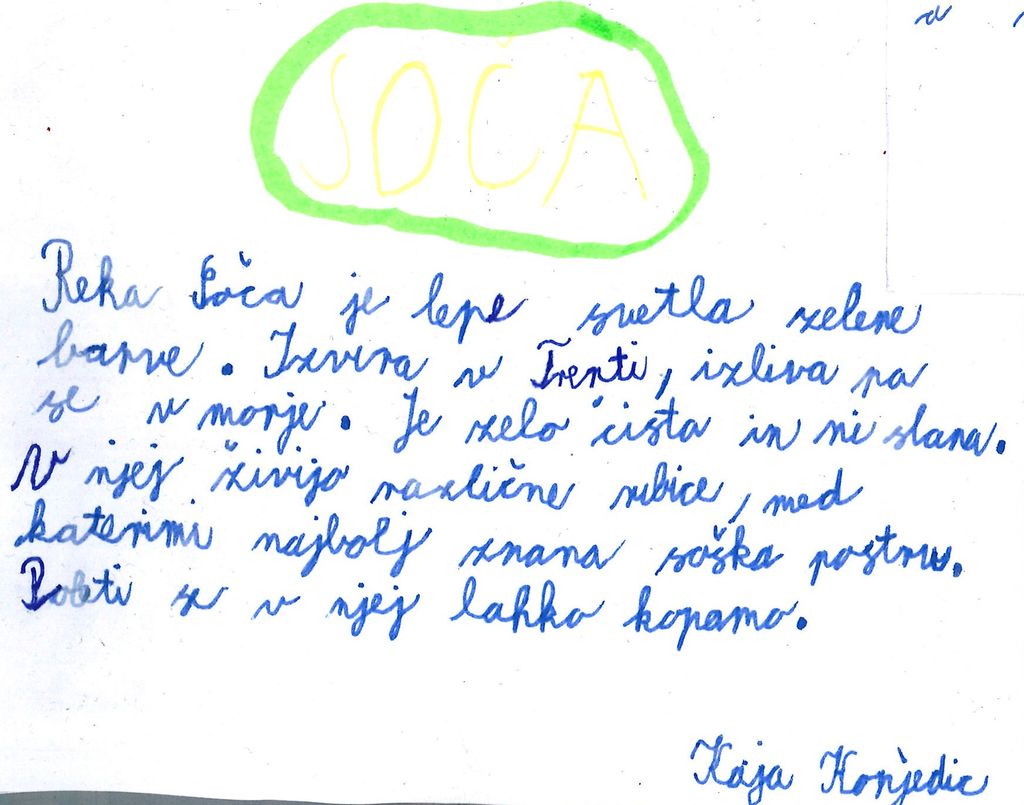 SOČA
Reka Soča je lepe svetla zelene
barve. Izvira v Trenti, izliva pa
se v morje. Je zelo čista in ni slana.
V njej živijo različne ribice, med
katerimi najbolj znana soška postru.
Poleti se v njej lahko kopamo.
Kaja Konjedic